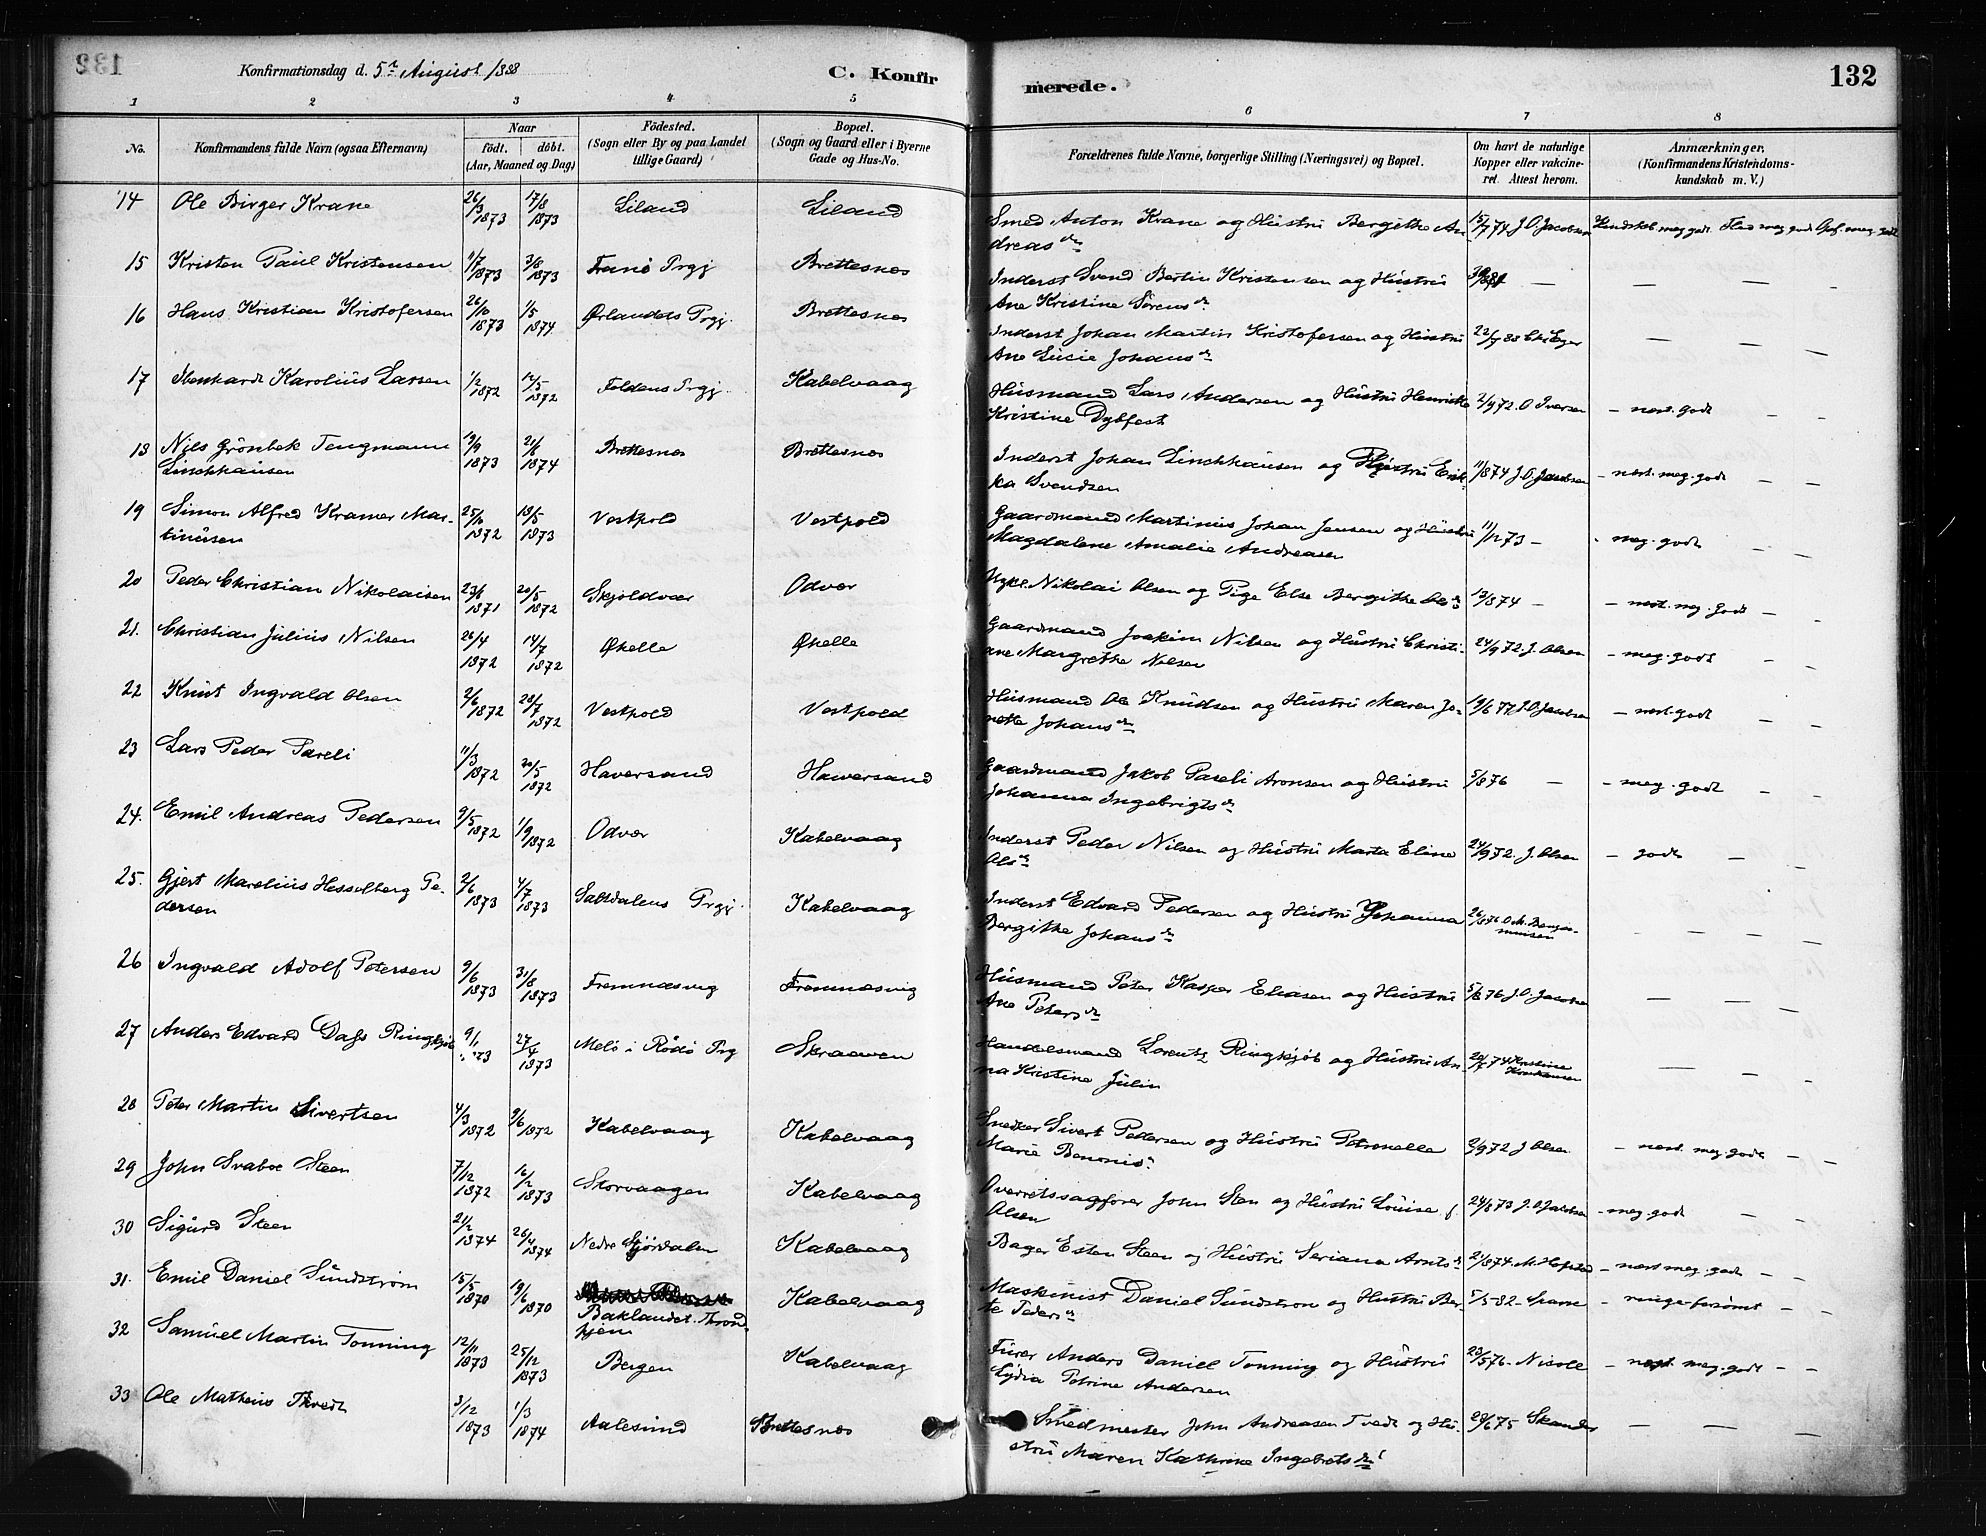 Konfirmationsdag d. 5te August 1888
C. Konfirmerede.
132
1 2 3 4 5 6 7 8
No.
Konfirmandens fulde Navn (ogsaa Efternavn)
Naar
födt. döbt.
(Aar, Maaned og Dag)
Födested.
(Sogn eller By og paa Landet
tillige Gaard)
Bopæl.
(Sogn og Gaard eller i Byerne
Gade og Hus-No.
Forældrenes fulde Navne, borgerlige Stilling (Næringsvei) og Bopæl.
Om havt de naturlige
Kopper eller vakcine-
ret. Attest herom.
Anmærkninger.
(Konfirmandens Kristendoms-
kundskab m. V.)
14 Ole Birger Krane 26/3 1873 17/8 1873 Liland Liland Smed Anton Krane og Hustru Bergitte An- 15/7 74 J.O. Jacobsen Kundskab meg godt Flid meg godt Opf. meg. godt
dreasdr
15 Kristen Paul Kristensen 1/7 1873 3/8 1873 Prgj Brettesnes Inderst Svend Bertin Kristensen og Hustru — — — —
Ane Kristine Sörensdr
16 Hans Kristian Kristofersen 26/10 1873 1/5 1874 Ørlandets Prgj. Brettesnes Inderst Johan Martin Kristofersen og Hustru — — —
Ane Lucie Johansdr
17 Karolius Larsen 1/2 1872 12/5 1872 Foldens Prgj. Kabelvaag Husmand Lars Andersen og Hustru Henrikke 2/9 72. O Iversen – nest. godt — —
Kristine Dybfest
18 Nils Grönbek Tengmann 19/9 1873 21/6 1874 Brettesnes Brettesnes Inderst Johan Linchhausen og Hustru Erik- 11/8 74 J.O. Jacobsen – nest. meg. godt — —
Linchhausen
ka Svendsen
19 Simon Alfred Kramer Mar- 25/6 1872 18/5 1873 Vestpold Vestpold Gaardmand Martinus Johan Jensen og Hustru 11/12 73 – - meg. godt — —
tinusen
Magdalene Amalie Andreasen
20 Peder Christian Nikolaisen 23/6 1871 20/5 1872 Skjoldvær Odvær Nikolai Olsen og Pige Else Bergitte Olsdr 13/8 74 – – nest. meg. godt —
21. Christian Julius Nilsen 26/4 1872 14/7 1872 Øhelle Øhelle Gaardmand Joakim Nilsen og Hustru Christi- 24/9 72. J. Olsen – meg. godt — —
ane Margrethe Nilsen
22 Knut Ingvald Olsen 2/6 1872 28/7 1872 Vestpold Vestpold Husmand Ole Knudsen og Hustru Maren Je- 19/6 77 J.O. Jacobsen – nest. godt — —
nette Johansdr
23 Lars Peder Pareli 11/3 1872 20/5 1872 Haversand Haversand Gaardmand Jakob Pareli Aronsen og Hustru 5/8 76 — – meg. godt — —
Johanna Ingebrigtsdr
24. Emil Andreas Pedersen 9/5 1872 1/9 1872 Odvær Kabelvaag Inderst Peder Nilsen og Hustru Marta Eline 24/9 72. J. Olsen – godt — —
Olsdr
25. Gjert Marelius Hesselberg Pe- 2/6 1873 4/7 1873 Saltdalens Prgj. Kabelvaag Inderst Edvard Pedersen og Hustru Johanna – — — —
dersen
Bergitte Johansdr
26 Ingvald Adolf Petersen 9/6 1873 31/8 1873 Fremnesvig Fremnesvig Husmand Peter Kasper Eliasen og Hustru 5/8 76 J.O. Jacobsen — — — —
Ane Petersdr
27 Anders Edvard Dass Ringkjöb 9/1 73 27/4 1873 Melö i Rödö Prg Skraaven Handelsmand Lorentz Ringkjöb og Hustru An- 74 Kristine — — —
na Kristine Julin
28 Peter Martin Sivertsen 4/3 1872 9/6 1872 Kabelvaag Kabelvaag Snedker Sivert Pedersen og Hustru Petronelle 2/9 72 J Olsen – nest. meg. godt — —
Marie Benonisdr
29 John Svaboe Steen 7/12 1872 16/2 1873 Storvaagen Kabelvaag Overretssagförer John Sten og Hustru Louise f. 24/8 73 J.O. Jacobsen – meg. godt —
Olsen
30 Sigurd Steen 21/2 1874 26/4 1874 Nedre Stjördalen Kabelvaag Bager Esten Steen og Hustru Seriana Arntsdr 21/8 74 M. – nest meg. godt — —
31. Emil Daniel Sundström 15/5 1870 19/6 1870 Kabelvaag Maskinist Daniel Sundstrom og Hustru Ber- 5/5 82 – ringe forsömt — —
Baklandet. Thrond-
te Pedersdr
hjem
32 Samuel Martin Tonning 12/11 1873 25/12 1873 Bergen Kabelvaag Furer Anders Daniel Tonning og Hustru 23/5 76 – Nicole – nest meg. godt — —
Lydia Petrine Andersen
33 Ole Matheus Tvedt 3/12 1873 1/3 1874 Aalesund Brettesnes Smedmester John Andreasen Tvedt og Hu- 29/6 75 — — —
stru Maren Kathrine Ingebretsdr